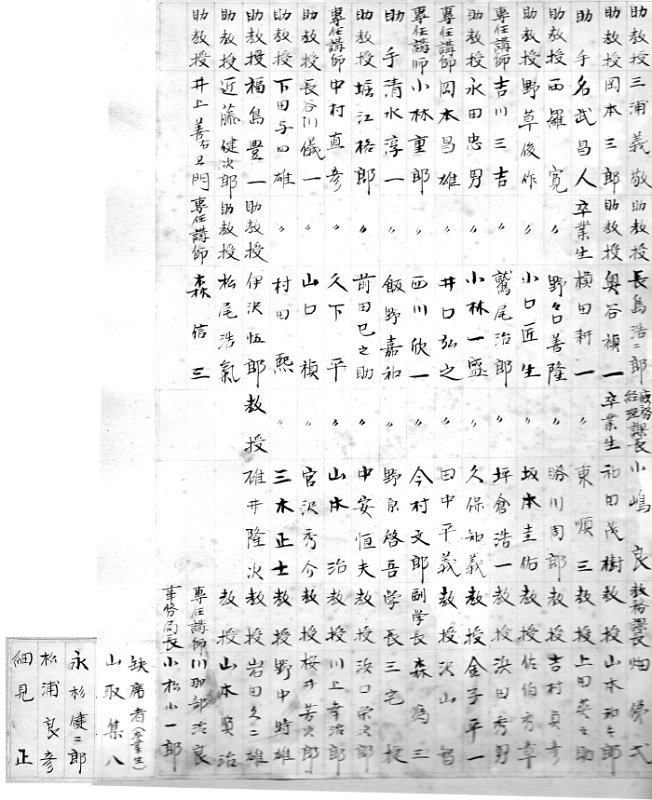 助教授 三浦義敬 助教授 長島浩二郎 庶務経理課長 小嶋良 教務課長 畑
助教授 岡本三郎 助教授 奥谷禎一 卒業生 和田茂樹 教授 山本和七郎
助手 名武昌人 卒業生 横田耕一 〃 東順三 教授 上田英之助
助教授 西羅寛 〃 野名善隆 〃 勝川周郎 教授 吉村貞彦
助教授 野草俊作 〃 小口匠生 〃 坂本圭佑 教授 佐伯方草
専任講師 吉川三吉 〃 鷲尾治郎 〃 坪倉浩一 教授 浜田秀男
助教授 永田忠男 〃 小林一盛 〃 久保知義 教授 金子平一
専任講師 岡本昌雄 〃 井口弘之 〃 田中平義 教授 沢山智
専任講師 小林重郎 〃 西川欣一 〃 今村文郎 副学長 森為三
助手 清水淳一 〃 飯野嘉和 〃 野原啓吾 学長 三宅捷
助教授 堀江格郎 〃 前田巳之助 〃 中安恒夫 教授 浜口栄次郎
専任講師 中村直彦 〃 久下平 〃 山本治 教授 川上幸治郎
助教授 長谷川儀一 〃 山口槙 〃 宮沢秀介 教授 桜井芳次郎
助教授 下田与四雄 〃 村田熙 〃 三木正士 教授 野中時雄
助教授 福島豊一 助教授 伊沢恆郎 教授 碓井隆次 教授 岩田久二雄
助教授 近藤健次郎 助教授 松尾浩氣 教授 山本賢治
助教授 井上善右ヱ門 専任講師 森信三 専任講師 川那部治良
事務局長 小松小一郎
缺席者(卒業生)
山取集八
永杉健二郎
松浦良彦
細見正